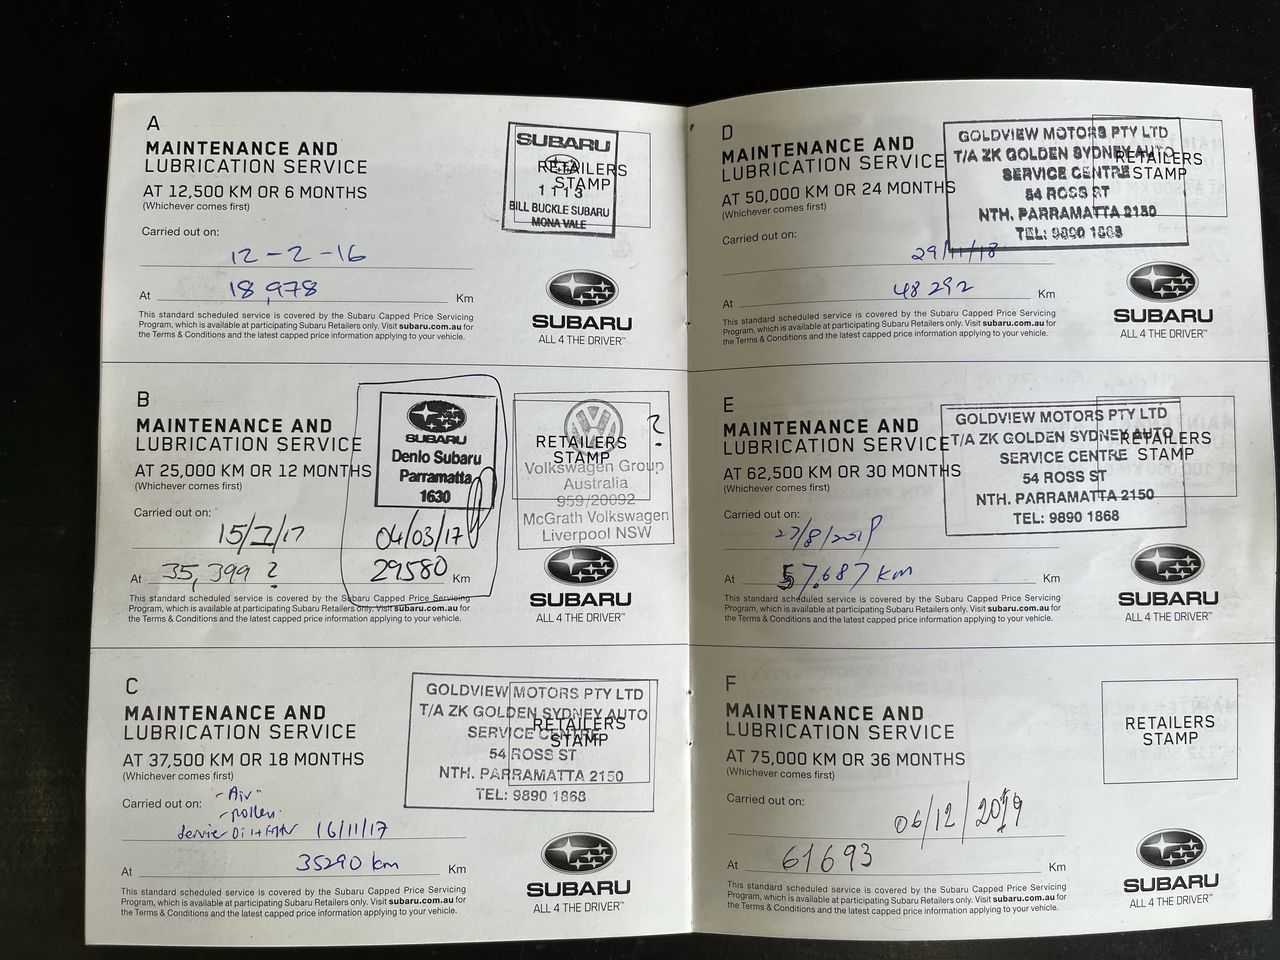 A
MAINTENANCE AND
LUBRICATION SERVICE
AT 12,500 KM OR 6 MONTHS
(Whichever comes first)
Carried out on:
12-2-16
At 18,978 Km
This standard scheduled service is covered by the Subaru Capped Price Servicing
Program, which is available at participating Subaru Retailers only. Visit subaru.com.au for
the Terms & Conditions and the latest capped price information applying to your vehicle.
RETAILERS
STAMP
SUBARU
1113
BILL BUCKLE SUBARU
MONA VALE
SUBARU
ALL 4 THE DRIVER™
B
MAINTENANCE AND
LUBRICATION SERVICE
AT 25,000 KM OR 12 MONTHS
(Whichever comes first)
Carried out on:
15/2/17
At 35,399 ? Km
SUBARU
Denlo Subaru
Parramatta
1630
04/03/17
29580
This standard scheduled service is covered by the Subaru Capped Price Servicing
Program, which is available at participating Subaru Retailers only. Visit subaru.com.au for
the Terms & Conditions and the latest capped price information applying to your vehicle.
RETAILERS
STAMP
?
Volkswagen Group
Australia
959/20092
McGrath Volkswagen
Liverpool NSW
SUBARU
ALL 4 THE DRIVER™
C
MAINTENANCE AND
LUBRICATION SERVICE
AT 37,500 KM OR 18 MONTHS
(Whichever comes first)
Carried out on:
- Air
- pollen
16/11/17
At 35290 km Km
This standard scheduled service is covered by the Subaru Capped Price Servicing
Program, which is available at participating Subaru Retailers only. Visit subaru.com.au for
the Terms & Conditions and the latest capped price information applying to your vehicle.
RETAILERS
STAMP
GOLDVIEW MOTORS PTY LTD
T/A ZK GOLDEN SYDNEY AUTO
SERVICE CENTRE
54 ROSS ST
NTH. PARRAMATTA 2150
TEL: 9890 1868
SUBARU
ALL 4 THE DRIVER™
D
MAINTENANCE AND
LUBRICATION SERVICE
AT 50,000 KM OR 24 MONTHS
(Whichever comes first)
Carried out on:
29/11/18
At 48292 Km
This standard scheduled service is covered by the Subaru Capped Price Servicing
Program, which is available at participating Subaru Retailers only. Visit subaru.com.au for
the Terms & Conditions and the latest capped price information applying to your vehicle.
RETAILERS
STAMP
GOLDVIEW MOTORS PTY LTD
T/A ZK GOLDEN SYDNEY AUTO
SERVICE CENTRE
54 ROSS ST
NTH. PARRAMATTA 2150
TEL: 9890 1868
SUBARU
ALL 4 THE DRIVER™
E
MAINTENANCE AND
LUBRICATION SERVICE
AT 62,500 KM OR 30 MONTHS
(Whichever comes first)
Carried out on:
27/8/2019
At 57,687 KM Km
This standard scheduled service is covered by the Subaru Capped Price Servicing
Program, which is available at participating Subaru Retailers only. Visit subaru.com.au for
the Terms & Conditions and the latest capped price information applying to your vehicle.
RETAILERS
STAMP
GOLDVIEW MOTORS PTY LTD
T/A ZK GOLDEN SYDNEY AUTO
SERVICE CENTRE
54 ROSS ST
NTH. PARRAMATTA 2150
TEL: 9890 1868
SUBARU
ALL 4 THE DRIVER™
F
MAINTENANCE AND
LUBRICATION SERVICE
AT 75,000 KM OR 36 MONTHS
(Whichever comes first)
Carried out on:
06/12/2019
At 61693 Km
This standard scheduled service is covered by the Subaru Capped Price Servicing
Program, which is available at participating Subaru Retailers only. Visit subaru.com.au for
the Terms & Conditions and the latest capped price information applying to your vehicle.
RETAILERS
STAMP
SUBARU
ALL 4 THE DRIVER™